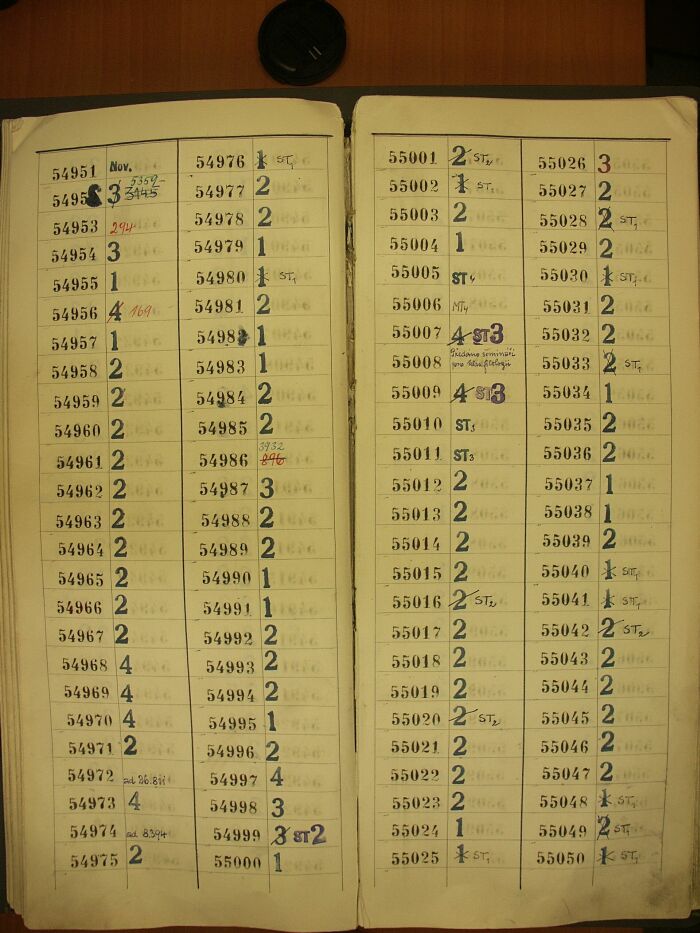 54951 Nov.
5495 3 5359 3445
54953 294
54954 3
54955 1
54956 4 169
54957 1
54958 2
54959 2
54960 2
54961 2
54962 2
54963 2
54964 2
54965 2
54966 2
54967 2
54968 4
54969 4
54970 4
54971 2
54972 ad 26.811
54973 4
54974 ad 8394
54975 2
54976 1 ST1
54977 2
54978 2
54979 1
54980 1 ST1
54981 2
54982 1
54983 1
54984 2
54985 2
54986 3932 896
54987 3
54988 2
54989 2
54990 1
54991 1
54992 2
54993 2
54994 2
54995 1
54996 2
54997 4
54998 3
54999 3 ST2
55000 1
55001 2 ST2
55002 1 ST1
55003 2
55004 1
55005 ST4
55006 MT4
55007 4 ST3
55008 Předáno semináři pro klas. filologii
55009 4 ST3
55010 ST3
55011 ST3
55012 2
55013 2
55014 2
55015 2
55016 2 ST2
55017 2
55018 2
55019 2
55020 2 ST2
55021 2
55022 2
55023 2
55024 1
55025 1 ST1
55026 3
55027 2
55028 2 ST1
55029 2
55030 1 ST1
55031 2
55032 2
55033 2 ST1
55034 1
55035 2
55036 2
55037 1
55038 1
55039 2
55040 1 ST1
55041 1 ST1
55042 2 ST2
55043 2
55044 2
55045 2
55046 2
55047 2
55048 1 ST1
55049 2 ST1
55050 1 ST1